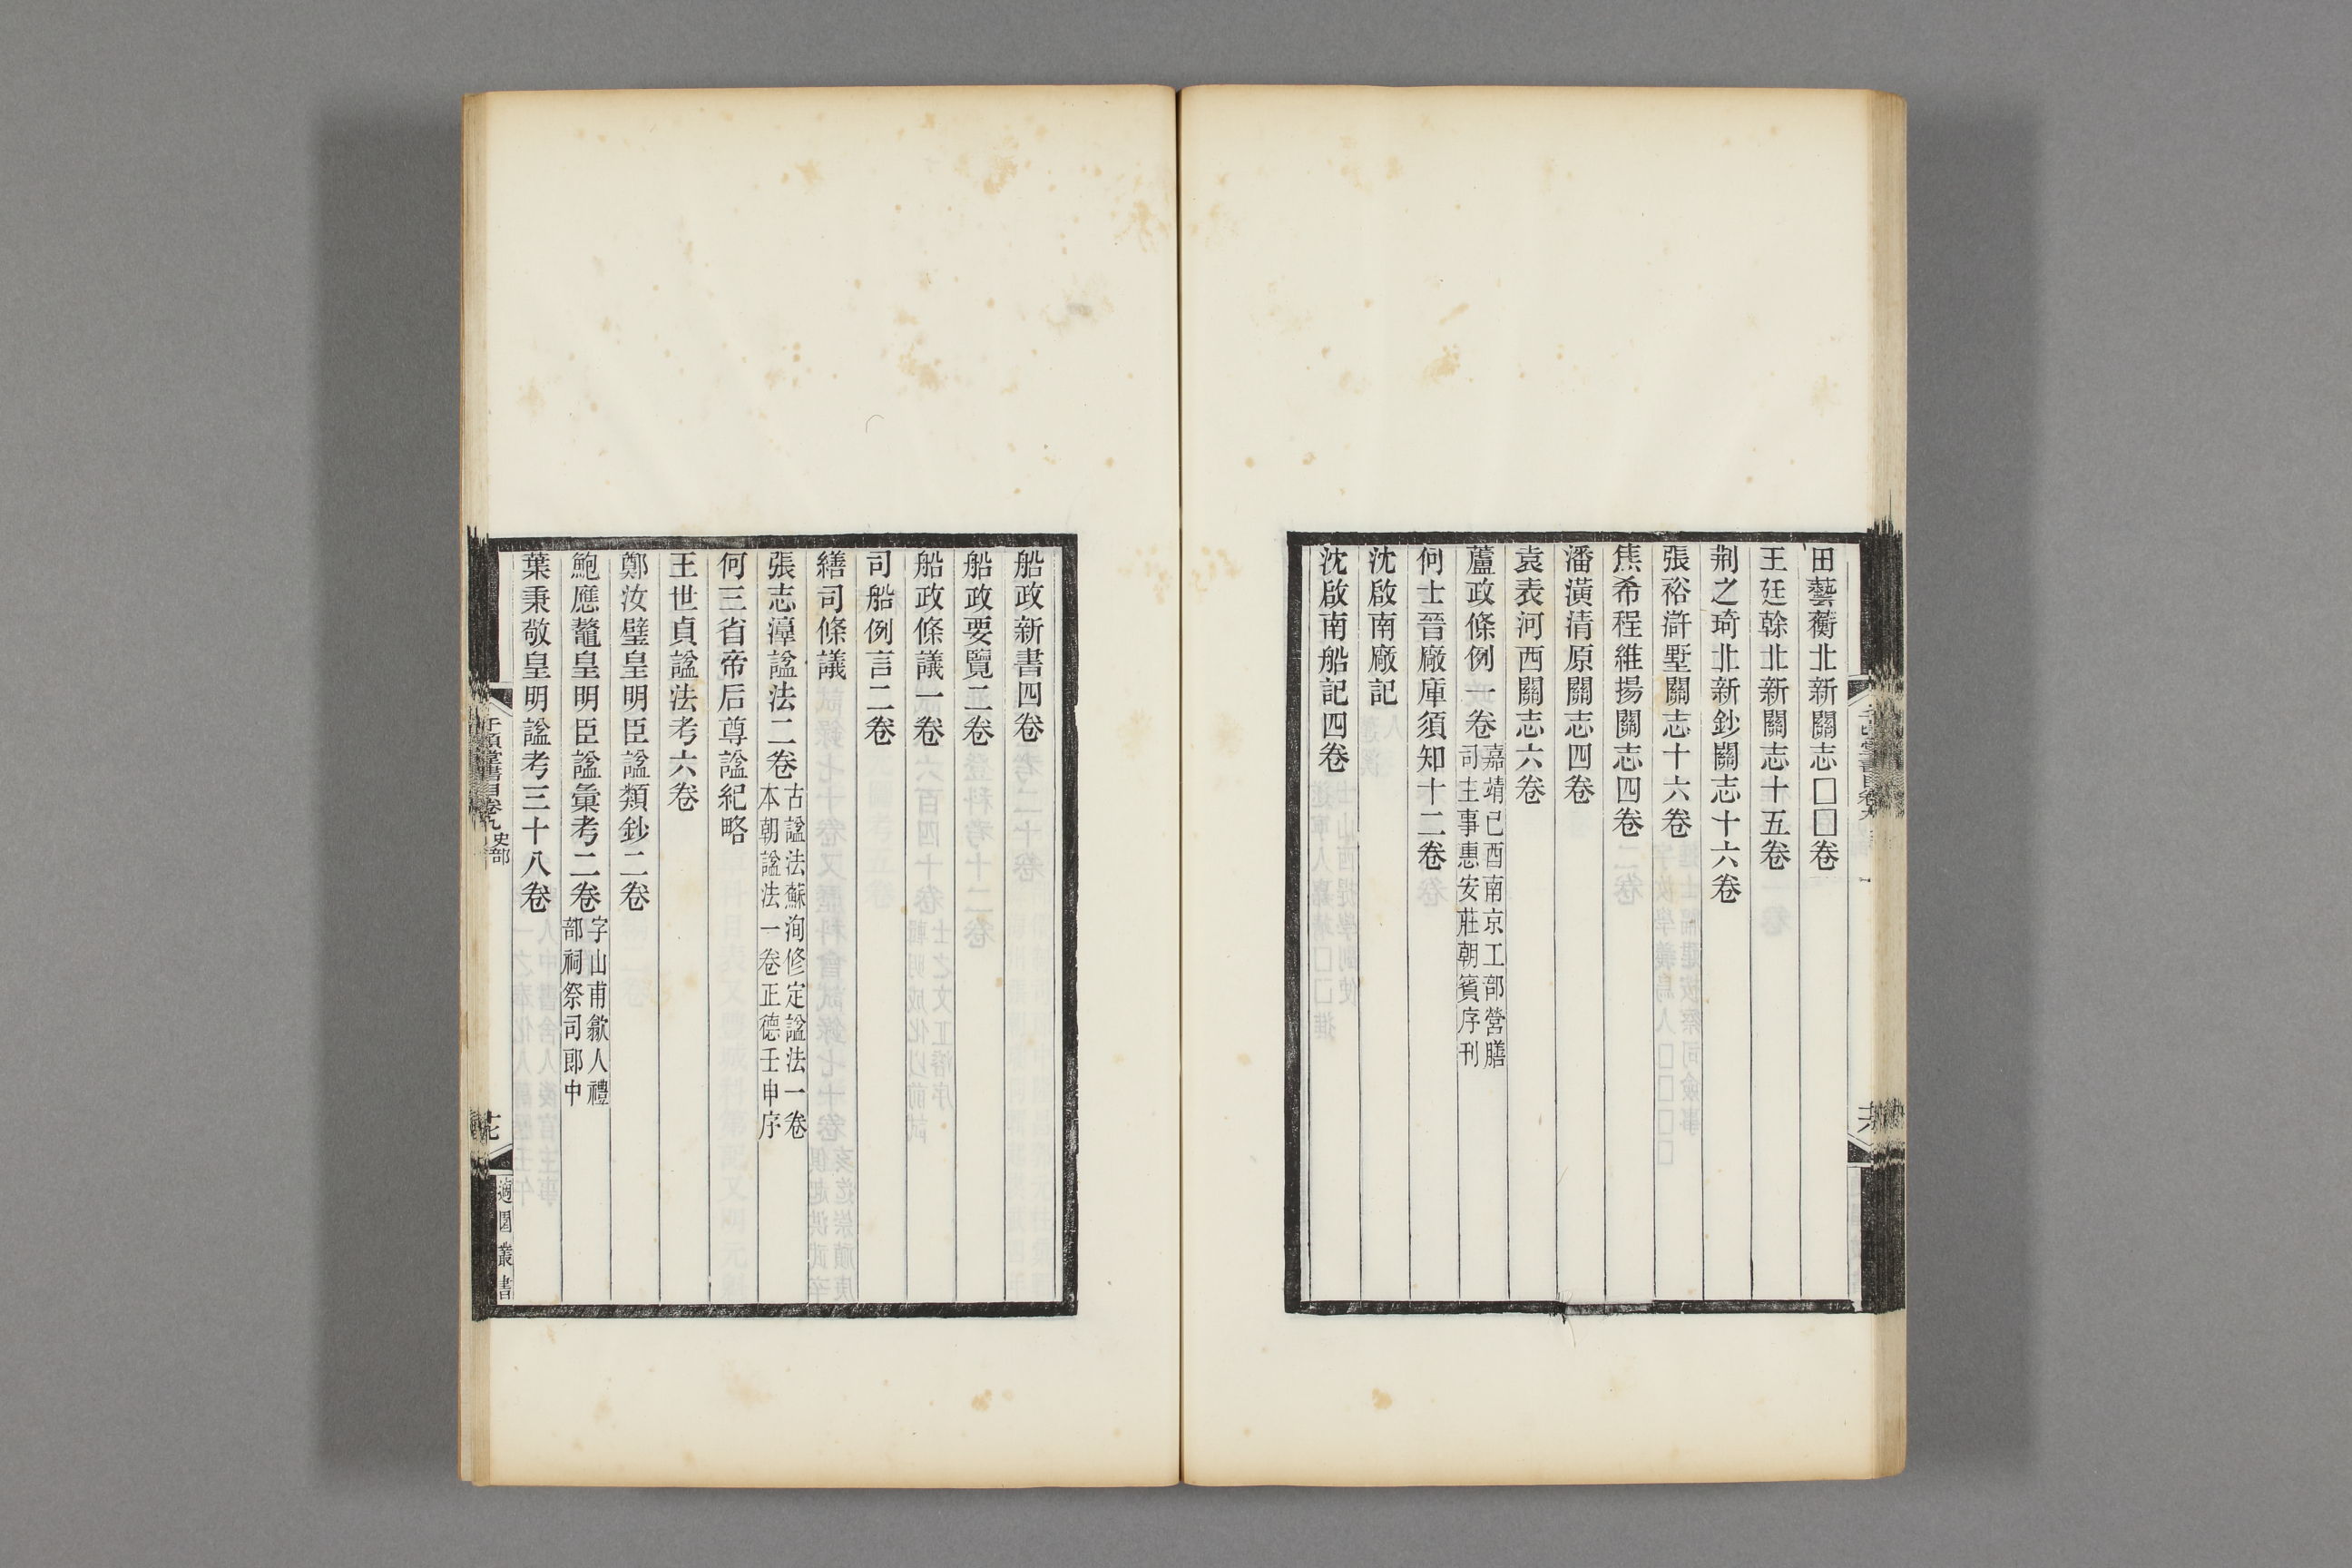 田藝蘅北新關志□□卷
王廷幹北新關志十五卷
荆之琦北新鈔關志十六卷
張裕滸墅關志十六卷
焦希程維揚關志四卷
潘潢清原關志四卷
袁表河西關志六卷
蘆政條例一卷嘉靖己酉南京工部營膳
司主事惠安莊朝賓序刊
何士晉廠庫須知十二卷
沈啟南廠記
沈啟南船記四卷
船政新書四卷
船政要覽二卷
船政條議一卷
司船例言二卷
繕司條議
張志淳謚法二卷古謚法蘇洵修定謚法一卷
本朝謚法一卷正德壬申序
何三省帝后尊謚紀略
王世貞謚法考六卷
鄭汝璧皇明臣謚類鈔二卷
鮑應鼇皇明臣謚彙考二卷字山甫歙人禮
部祠祭司郎中
葉秉敬皇明謚考三十八卷
千頃堂書目卷九 史部
適園叢書